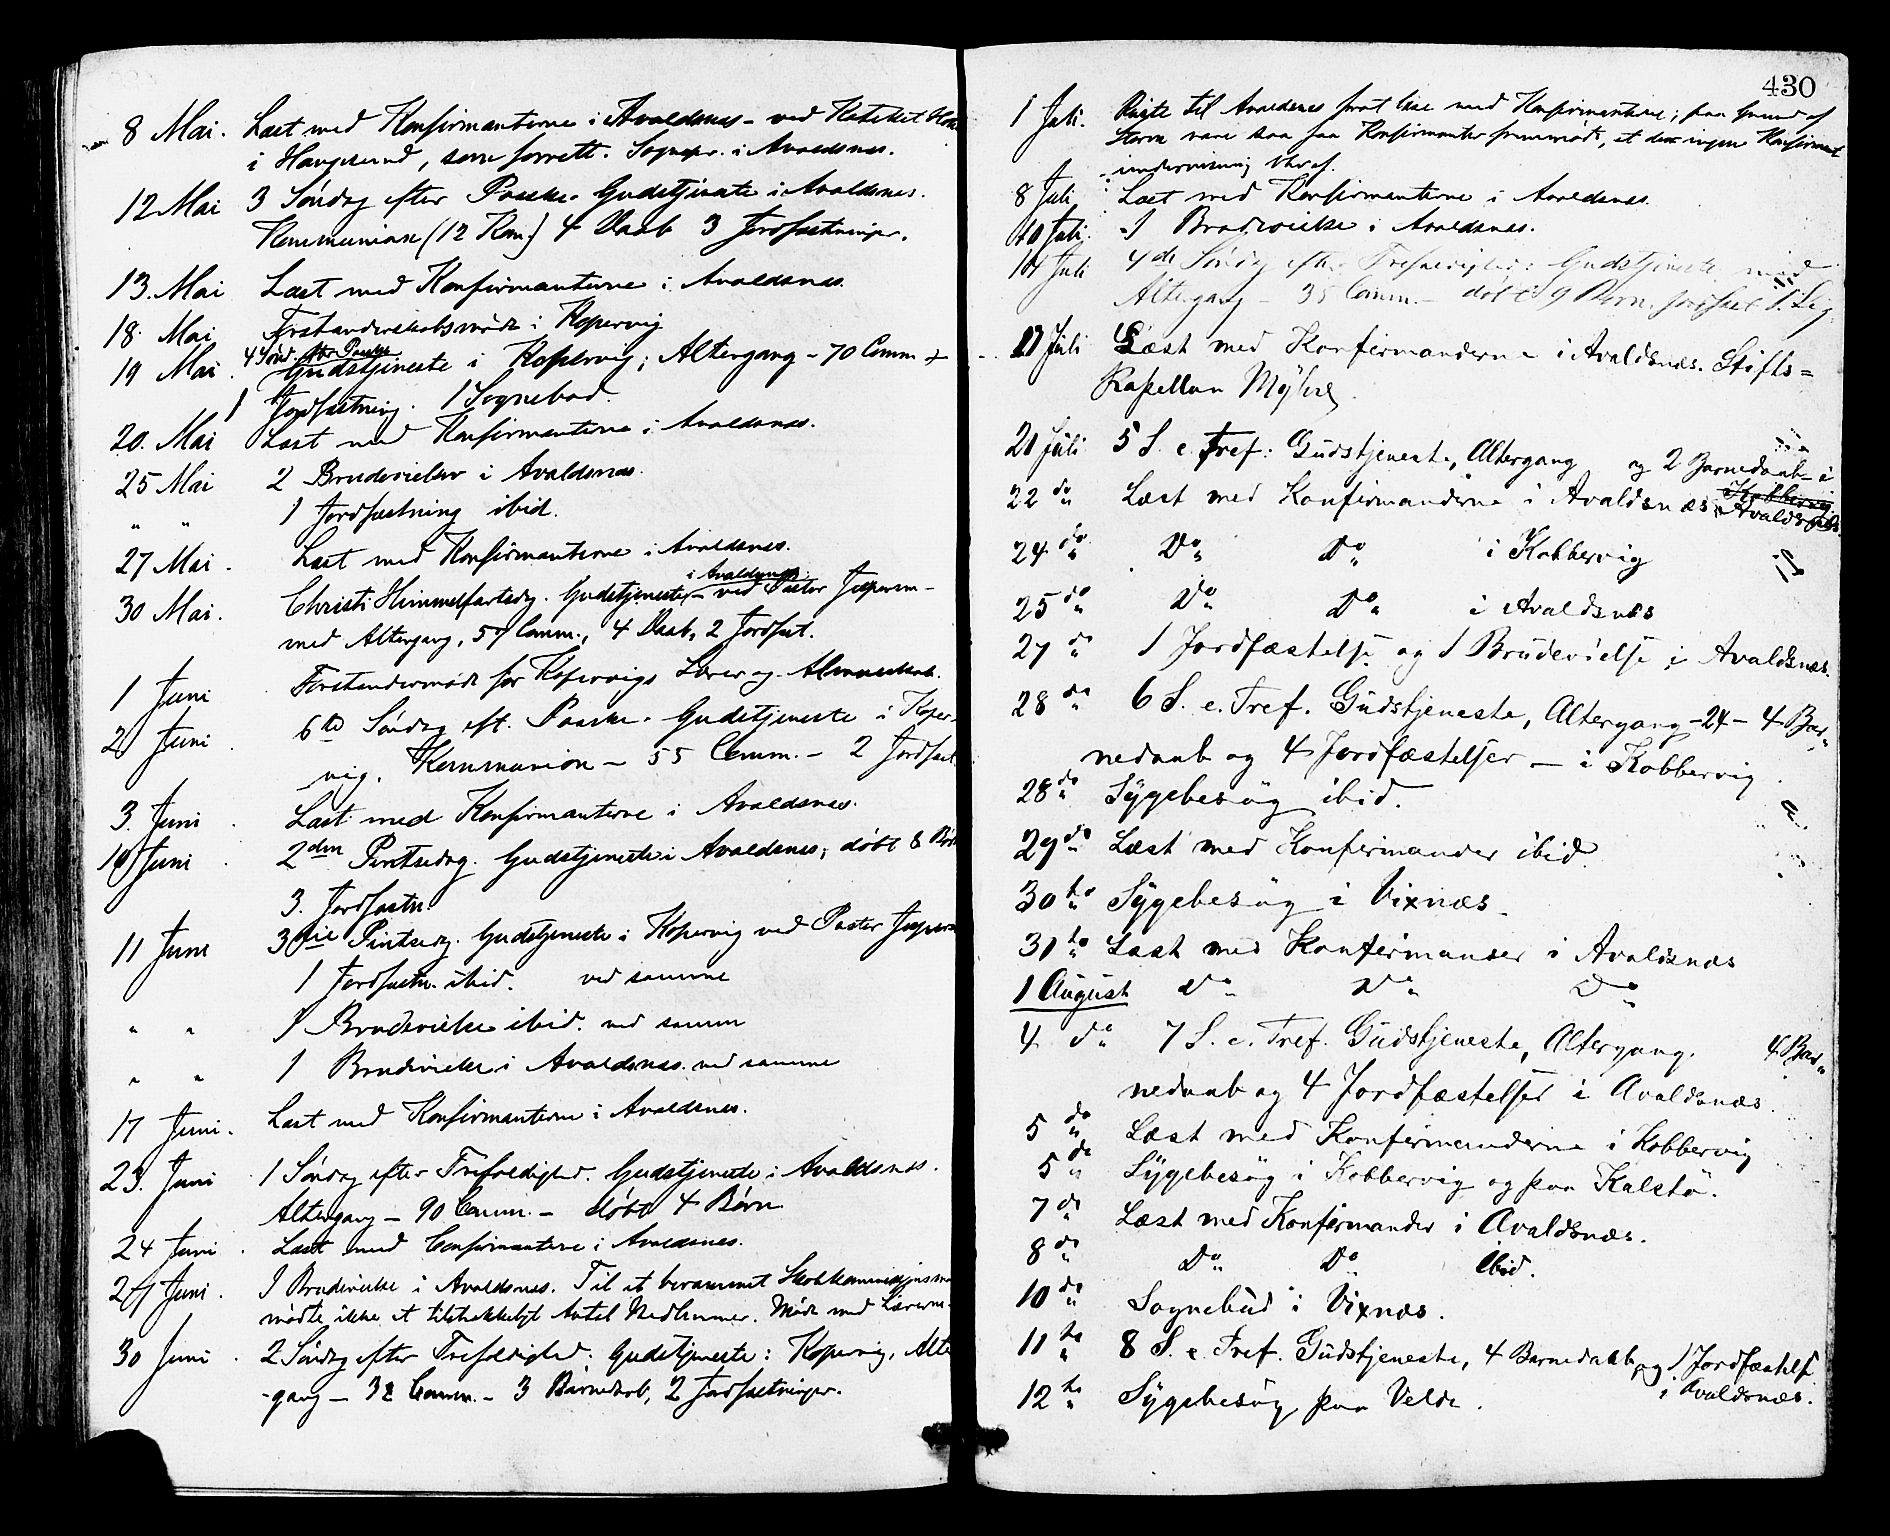 8 Mai. Læst med Konfirmanterne i Avaldsnæs - ved Kateket
i Haugesund, som forrett. Sognepr. i Avaldsnes.
12 Mai 3 Söndag efter Paaske. Gudstjeneste i Avaldsnes.
Kommunion (12 Kom.) 4 Daab 3 Jordfæstninger.
13. Mai Læst med Konfirmanterne i Avaldsnes.
18. Mai Forstanderskabsmøde i Kopervig
19 Mai. 4 Sönd. efter Paaske Gudstjeneste i Kopervig; Altergang - 70 Comm.
1 Jordfæstning. 1 Sognebud.
20. Mai Læst med Konfirmanterne i Avaldsnes.
25 Mai 2 Brudevielser i Avaldsnes.
" " 1 Jordfæstning ibid.
27 Mai. Læst med Konfirmanterne i Avaldsnes.
30 Mai. Christi Himmelfartsdag. Gudstjeneste i Avaldsnes - ved Pastor Jespersen -
med Altergang, 57 Comm., 4 Daab, 2 Jordfæst.
1 Juni Forstandermøde for Kopervigs
2 Juni 6te Söndag eft. Paaske. Gudstjeneste i Koper-
vig. Kommunion - 55 Comm. - 2 Jordfæst
3. Juni Læst med Konfirmanterne i Avaldsnes.
10 Juni 2den Pintsedag. Gudstjeneste i Avaldsnes, döbt 8 Børn
3. Jordfæstn.
11 Juni 3die Pintsedag. Gudstjeneste i Kopervig ved Pastor Jespersen
1 Jordfæstn. ibid. ved samme
" " 1 Brudevielse ibid. ved samme
" " 1 Brudevielse i Avaldsnes ved samme
17 Juni. Læst med Konfirmanterne i Avaldsnes.
23. Juni 1 Söndag efter Trefoldighed. Gudstjeneste i Avaldsnes.
Altergang - 90 Comm. - döbt 4 Børn
24 Juni. Læst med Confirmanterne i Avaldsnes.
Juni. 1 Brudevielse i Avaldsnes. Til et berammet
mødte ikke et tilstrækkeligt Antal Medlemmer. Møde med Lærerne.
30 Juni. 2 Söndag efter Trefoldighed. Gudstjeneste i Kopervig, Alter
-gang - 32 Comm. - 3 Barnedaab, 2 Jordfæstninger.
430
1 Juli. Reiste til Avaldsnes for at læse med Konfirmanterne; paa Grund af
Storm vare saa faa Konfirmanter fremmødt, at der ingen Konfirmant
undervisning blev af.
8 Juli Læst med Konfirmanterne i Avaldsnes.
10 Juli. 1 Brudevielse i Avaldsnes.
14 Juli 4de Söndag efter Trefoldighed: Gudstjeneste med
Altergang - 35 Comm. - döbt 9 Børn, jordfæstet 1 Lig
Juli Læst med Konfirmanderne i Avaldsnæs. Stifts=
Kapellan Myhre
21 Juli 5 S. e. Tref: Gudstjeneste, Altergang og 2 Barnedaab - i
Kobbervig Avaldsnæs
22 do Læst med Konfirmanderne i Avaldsnæs
24 do Do Do i Kobbervig
25 do Do Do i Avaldsnæs
27 do 1 Jordfæstelse og 1 Brudevielse i Avaldsnæs.
28 do 6 S. e. Tref. Gudstjeneste, Altergang -24- 4 Bar„
nedaab og 4 Jordfæstelser - i Kobbervig.
28 do Sygebesög ibid.
29 do Læst med Konfirmander ibid
30 to Sygebesög i Vixnæs.
31 to Læst med Konfirmander i Avaldsnæs
1 August Do Do Do
4 do 7 S. e. Tref. Gudstjeneste, Altergang. 4 Bar„
nedaab og 4 Jordfæstelser i Avaldsnæs.
5 do Læst med Konfirmanderne i Kobbervig
5 do Sygebesög i Kobbervig og paa Kalstö.
7 do Læst med Konfirmander i Avaldsnæs.
8 do Do Do ibid.
10 do Sognebud i Vixnæs.
11 to 8 S. e. Tref. Gudstjeneste, 4 Barnedaab, og 1 Jordfæstelse
i Avaldsnæs.
12 to Sygebesög paa Velde.